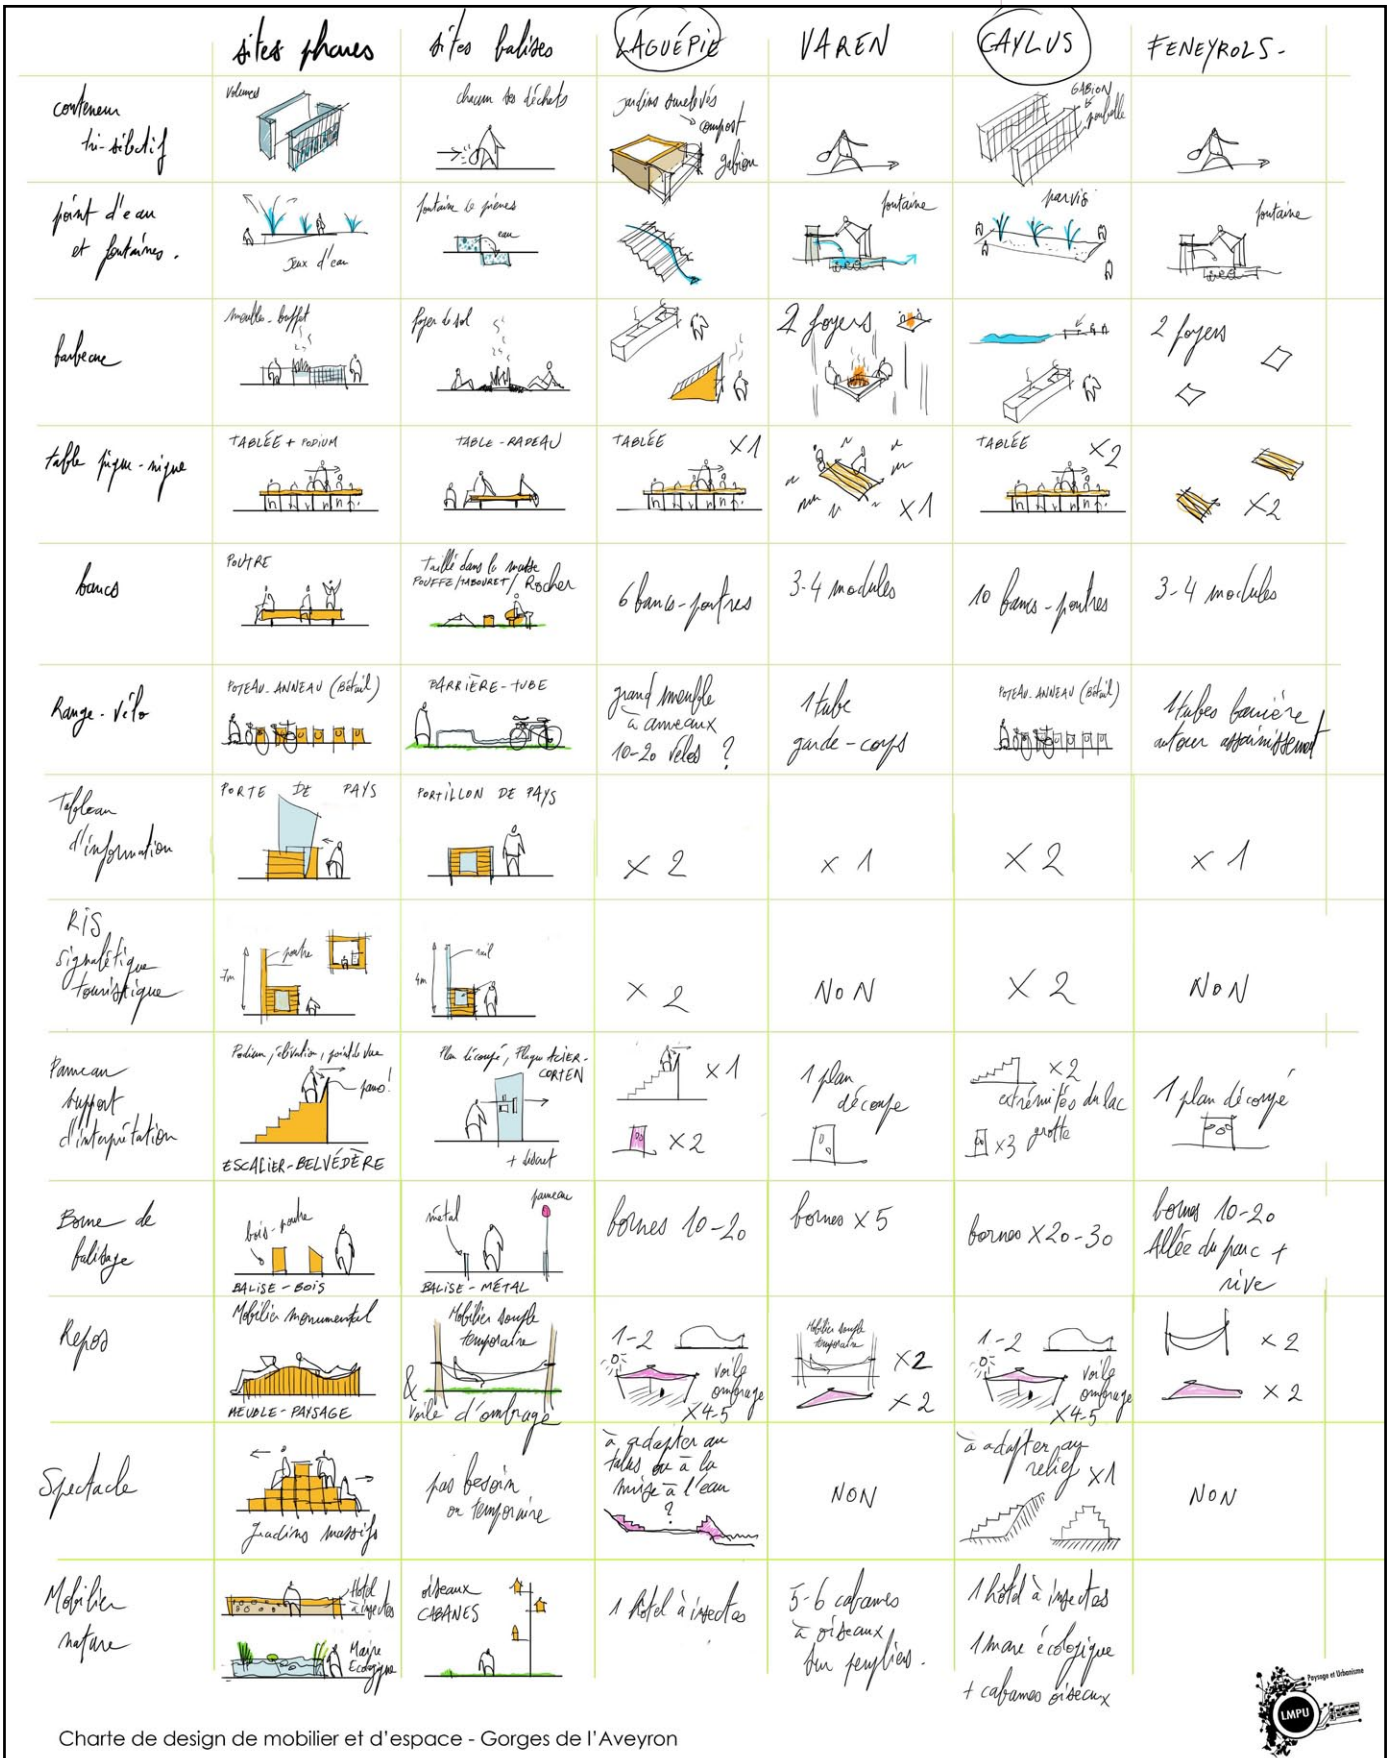 sites phares
sites balises
LAGUÉPIE
VAREN
CAYLUS
FENEYROLS-
conteneur
tri-sélectif
Volumes
chacun ses déchets
jardins surelevés
→ compost
gabion
GABION
&
poubelle
point d'eau
et fontaines.
Jeux d'eau
fontaine de pierres
eau
fontaine
parvis
fontaine
barbecue
meuble-buffet
foyer de sol
2 foyers
2 foyers
table pique-nique
TABLÉE + PODIUM
TABLE-RADEAU
TABLÉE
X1
X1
TABLÉE
X2
X2
bancs
POUTRE
Taillé dans la masse
POUFFE/TABOURET/Rocher
6 bancs-poutres
3-4 modules
10 bancs-poutres
3-4 modules
Range-Vélo
POTEAU-ANNEAU (Bétail)
BARRIÈRE-TUBE
grand meuble
à anneaux
10-20 vélos ?
1 tube
garde-corps
POTEAU-ANNEAU (Bétail)
1 tubes barrière
autour assainissement
Tableau
d'information
PORTE DE PAYS
PORTILLON DE PAYS
X 2
X 1
X 2
X 1
RIS
signalétique
touristique
7m
poutre
4m
rail
X 2
NON
X 2
NON
Panneau
support
d'interprétation
Podium, élévation, point de vue
pano!
ESCALIER-BELVÉDÈRE
Plan découpé, Plaque ACIER-
CORTEN
+ discret
X1
X2
1 plan
découpe
X2
extrémités du lac
X3 grotte
1 plan découpé
Borne de
balisage
bois-poutre
BALISE-BOIS
métal
panneau
BALISE-MÉTAL
bornes 10-20
bornes X5
bornes X20-30
bornes 10-20
Allée du parc +
rive
Repos
Mobilier monumental
MEUBLE-PAYSAGE
Mobilier souple
temporaire
&
Voile d'ombrage
1-2
voile
ombrage
X4-5
Mobilier souple
temporaire
X2
X2
1-2
voile
ombrage
X4-5
X2
X2
Spectacle
Gradins massifs
pas besoin
ou temporaire
à adapter au
talus ou à la
mise à l'eau
?
NON
à adapter au
relief X1
NON
Mobilier
nature
Hotel
à insectes
Mare
Ecologique
oiseaux
CABANES
1 hôtel à insectes
5-6 cabanes
à oiseaux
sur peupliers.
1 hôtel à insectes
1 mare écologique
+ cabanes oiseaux
Charte de design de mobilier et d'espace - Gorges de l'Aveyron
Paysage et Urbanisme
LMPU